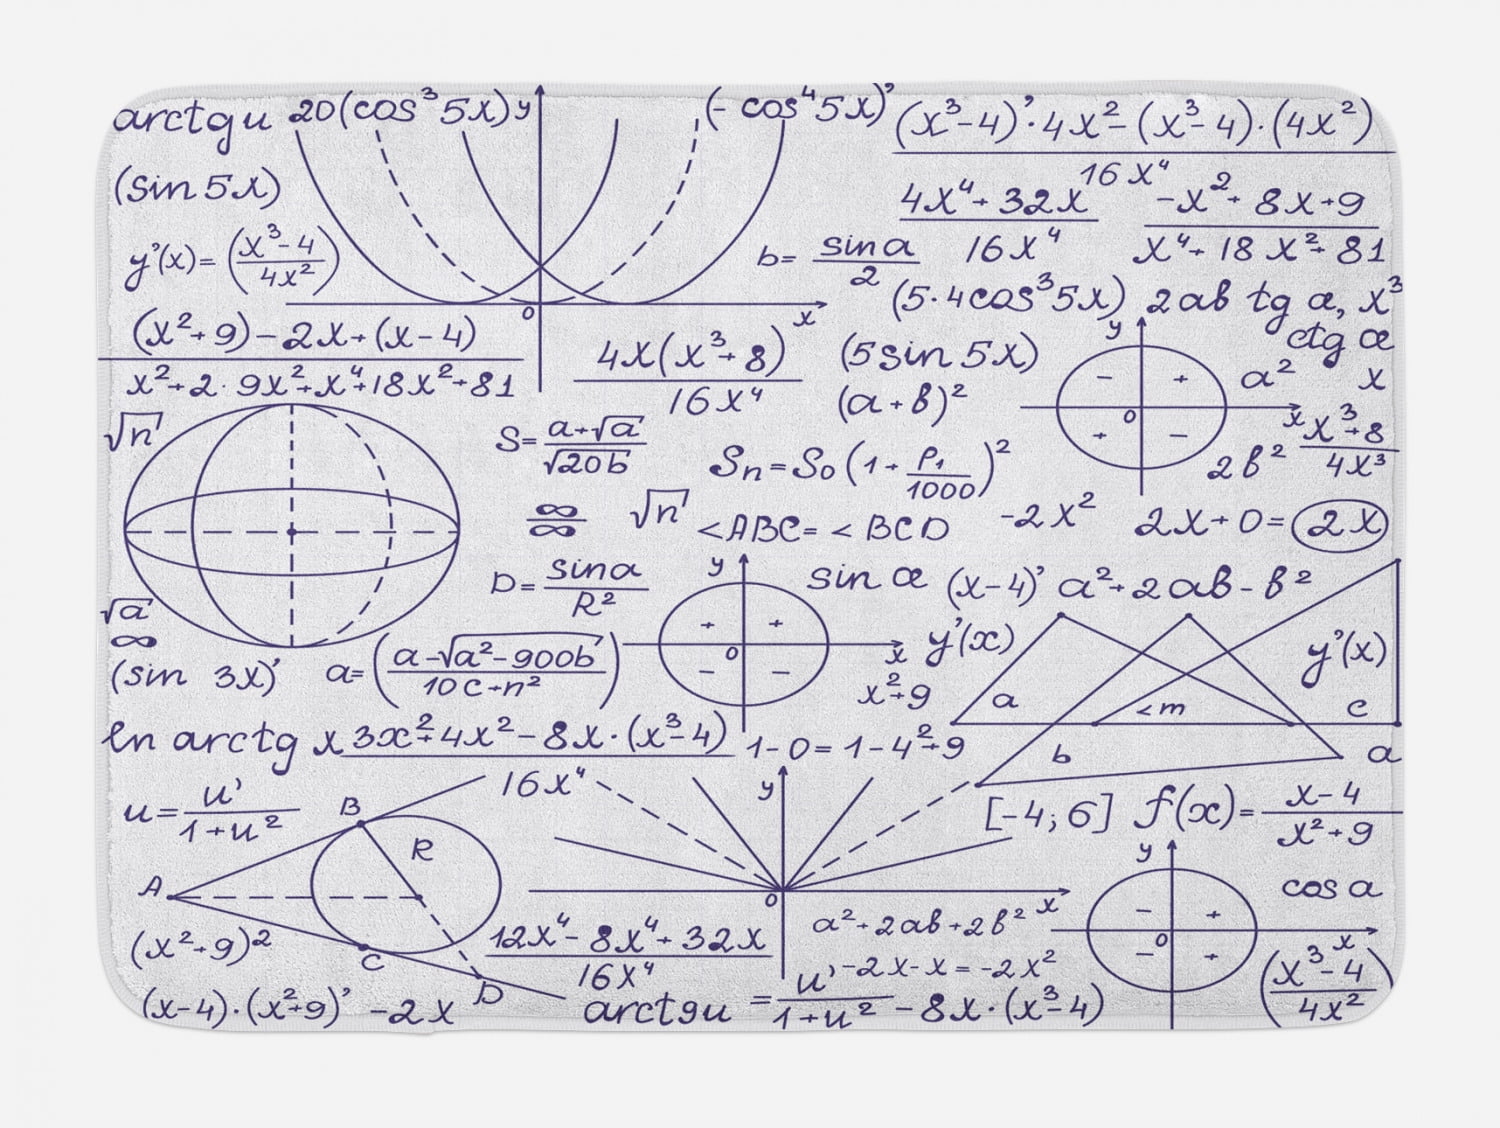 arctgu 20(cos³5x) y (- cos⁴5x)' (x³-4)'·4x²-(x³-4)·(4x²)
16x⁴
(sin 5x)
4x⁴+32x -x²+8x+9
16x⁴ x⁴+18x²+81
y'(x)= (x³-4 / 4x²)
b= sin a / 2
(5·4cos³5x) 2ab tg æ, x³
0 x
y ctg æ
(x²+9)-2x+(x-4)
x²+2·9x²+x⁴+18x²+81
4x(x³+8)
16x⁴
(5sin 5x)
- + a² x
(a+b)²
0 x
√n'
S= a+√a' / √20b
x³+8
4x³
+ -
Sₙ=S₀(1+ P₁/1000)²
2b²
∞/∞ √n' <ABC= <BCD -2x² 2x+0= 2x
D= sin a / R²
y sin æ (x-4)' a²+2ab-b²
√a'
∞
+ +
0 x
y'(x) y'(x)
(sin 3x)' a=(a-√a²-900b' / 10c+n²)
- -
x²+9 a <m c
ln arctg x 3x²+4x²-8x·(x³-4)
16x⁴
1-0= 1-4²+9 b a
u= u' / 1+u²
B R
y
[-4;6] f(x)= x-4 / x²+9
A
y
cos a
0 x
- +
0 x
- +
(x²+9)² C
12x⁴-8x⁴+32x
16x⁴
a²+2ab+2b²
-2x-x=-2x²
(x³-4 / 4x²)
(x-4)·(x²+9)' -2x D arctgu = u' / 1+u² -8x·(x³-4)